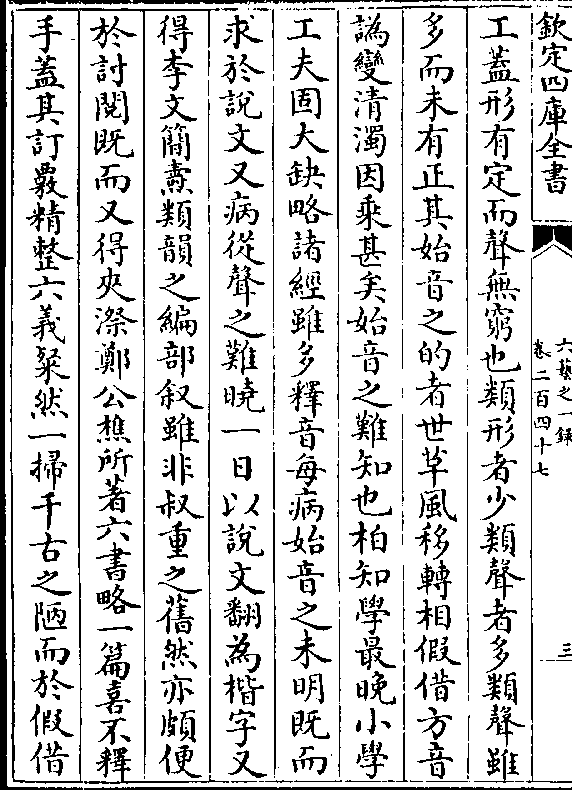 欽定四庫全書
六藝之一錄
卷二百四十七
三
工蓋形有定而聲無窮也類形者少類聲者多類聲雖
多而未有正其始音之的者世草風移轉相假借方音
譌變清濁因乘甚矣始音之難知也柏知學最晚小學
工夫固大缺略諸經雖多釋音每病始音之未明既而
求於說文又病從聲之難曉一日以說文翻為楷字又
得李文簡燾類韻之編部叙雖非叔重之舊然亦頗便
於討閱既而又得夾漈鄭公樵所著六書略一篇喜不釋
手蓋其訂覈精整六義粲然一掃千古之陋而於假借